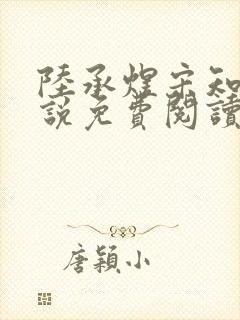 陸承煋宋知
說免費閱讀
唐穎小